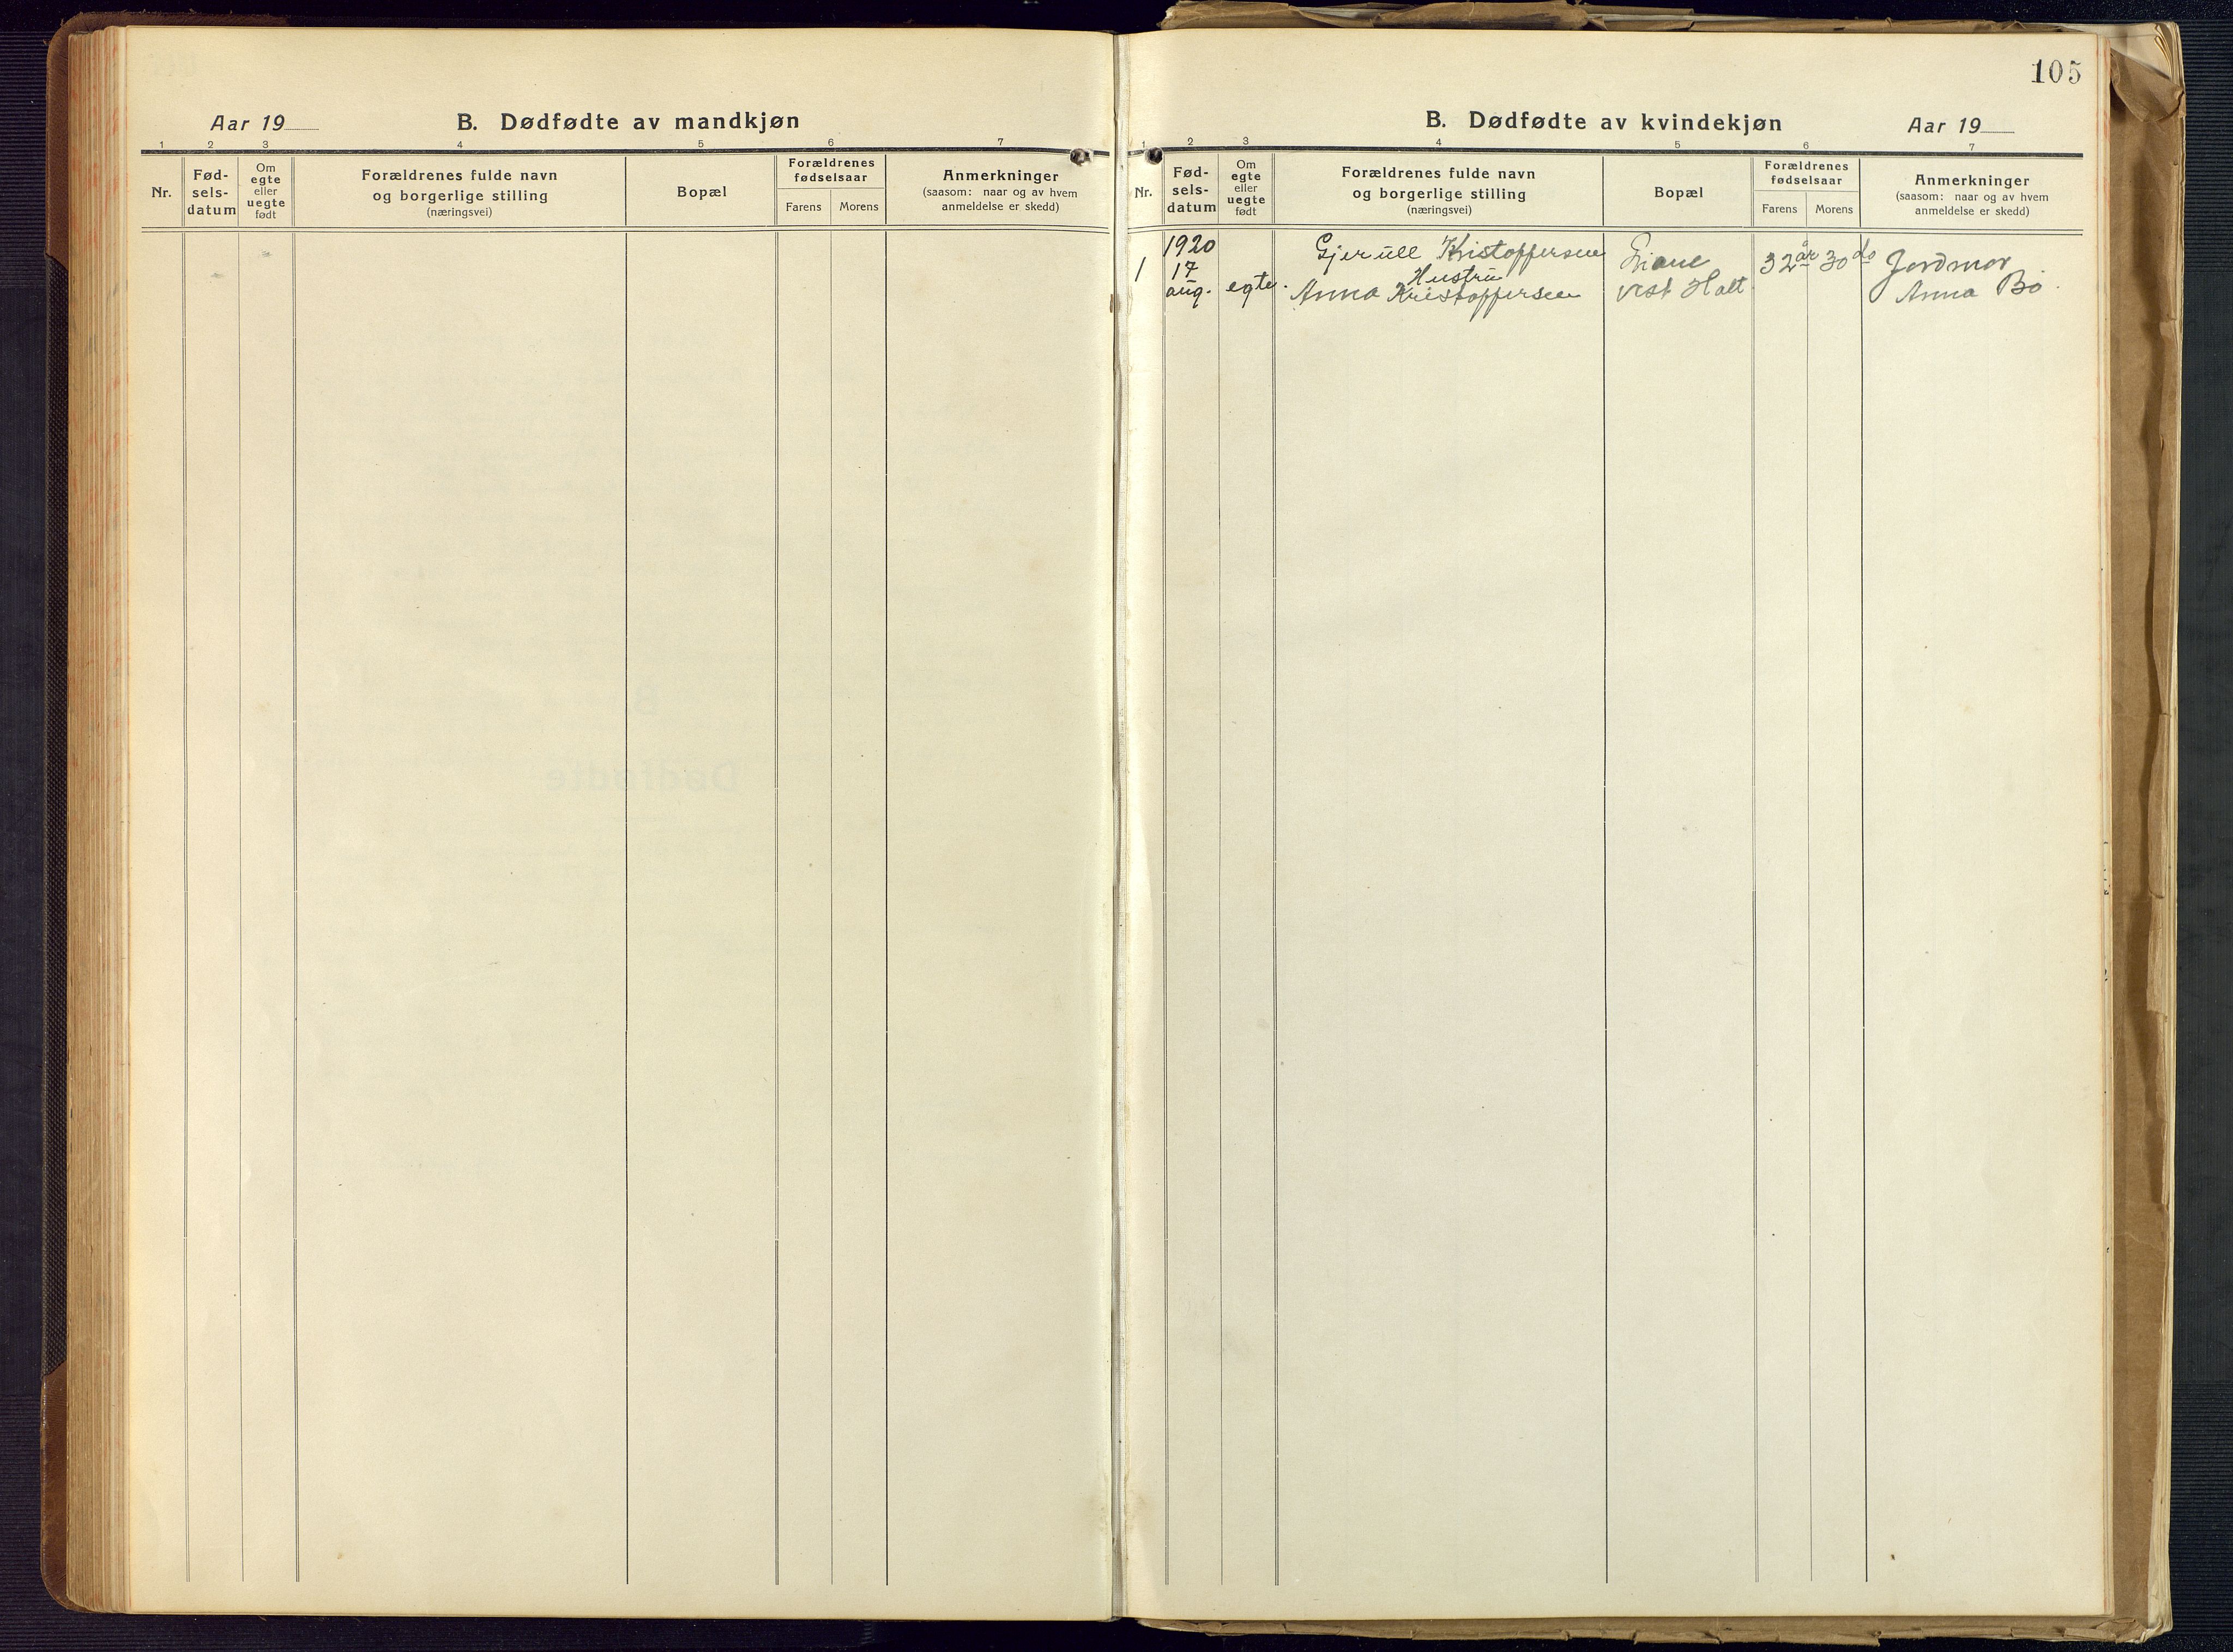 Aar 19
B. Dødfødte av mandkjøn
1 2 3 4 5 6 7
Nr.
Fød-
sels-
datum
Om
egte
eller
uegte
født
Forældrenes fulde navn
og borgerlige stilling
(næringsvei)
Bopæl
Forældrenes
fødselsaar
Farens Morens
Anmerkninger
(saasom: naar og av hvem
anmeldelse er skedd)
105
B. Dødfødte av kvindekjøn
Aar 19
1 2 3 4 5 6 7
Nr.
Fød-
sels-
datum
Om
egte
eller
uegte
født
Forældrenes fulde navn
og borgerlige stilling
(næringsvei)
Bopæl
Forældrenes
fødselsaar
Farens Morens
Anmerkninger
(saasom: naar og av hvem
anmeldelse er skedd)
1
1920
17
aug.
egte.
Gjerull Kristoffersen
Hustru
Anna Kristoffersen
vest Holt
32 år
30 do
Jordmor
Anna Bo.